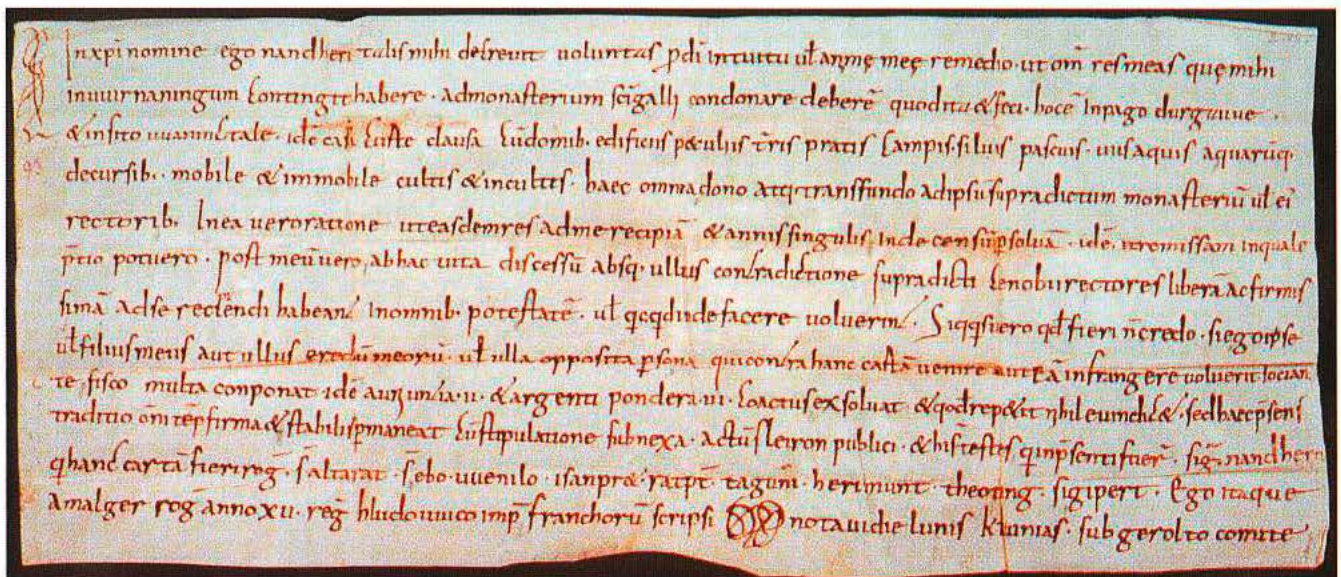 In xpi nomine ego nandheri talis mihi decrevit voluntas p̱ di intuitu ul̄ anime̜ mee̜ remedio · ut om̄ res meas que̜ mihi
in uuirnaningum contingit habere · ad monasterium sc̄i galli condonare deberē quod ita & feci · hoc ē In pago durgauue ·
& in sito uuaninctale · idē casā cū st̄e clausa cū domib· edificiis peculiis t̄ris pratis campis · siluis pascuis · uiis aquis aquarūq·
decursib· · mobile & immobile cultis & incultis · haec omnia dono atq· transfundo ad ipsū supradictum monasteriū ul̄ ei
rectorib· In ea vero ratione ut easdem res ad me recipiā & annis singulis Inde censū p̱soluā · idē · tromissam in quale
p̄tio potuero · post meū vero, ab hac uita discessū absq· ullius contradictione supradicti cenobii rectores liberā ac firmis
simā ad se recipiendi habeant In omnib· potestatē · ul̄ qcqd inde facere voluerint · Siqqs vero qd̄ fieri n̄ credo · si ego ipse
ul̄ filius meus aut ullus eredū meorū · ul̄ ulla opposita p̱sona qui contra hanc cartā venire aut eā infrangere voluerit socian
te, fisco multa conponat idē auri uncia · ii · & argenti pondera · iii · coactus exsoluat & qod repetit nihil euindicet · sed haec p̄sens
traditio om̄ tep̄ firma & stabilis p̱maneat cū stipulatione subnexa · actū sleiron publici · & his testes qi inp̄senti fuer̄ · sig̃ nandheri
qi hanc cartā fieri rog̃ · s̄ altarat · s̄ ebo · uuenilo · isanpr& · ratpt̄ · taguni · herimunt · theoting · sigipert · Ego itaque
amalger rog̃ anno xv · reg̃ hludouuico imp̄ franchorū scripsi notaui die lunis kl iunias · sub gerolto comite